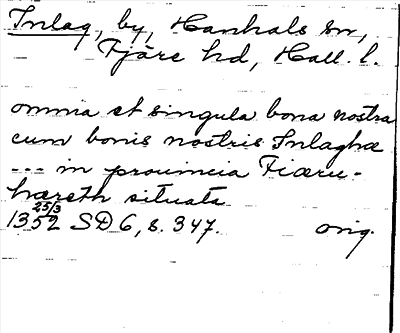 Inlag, by, Hanhals sn,
Fjäre hd, Hall. l.
omnia et singula bona nostra
cum bonis nostris Inlaghæ
--- in prouincia Fiæru-
hæreth situata
25/3
1352 SD 6, s. 347. orig.